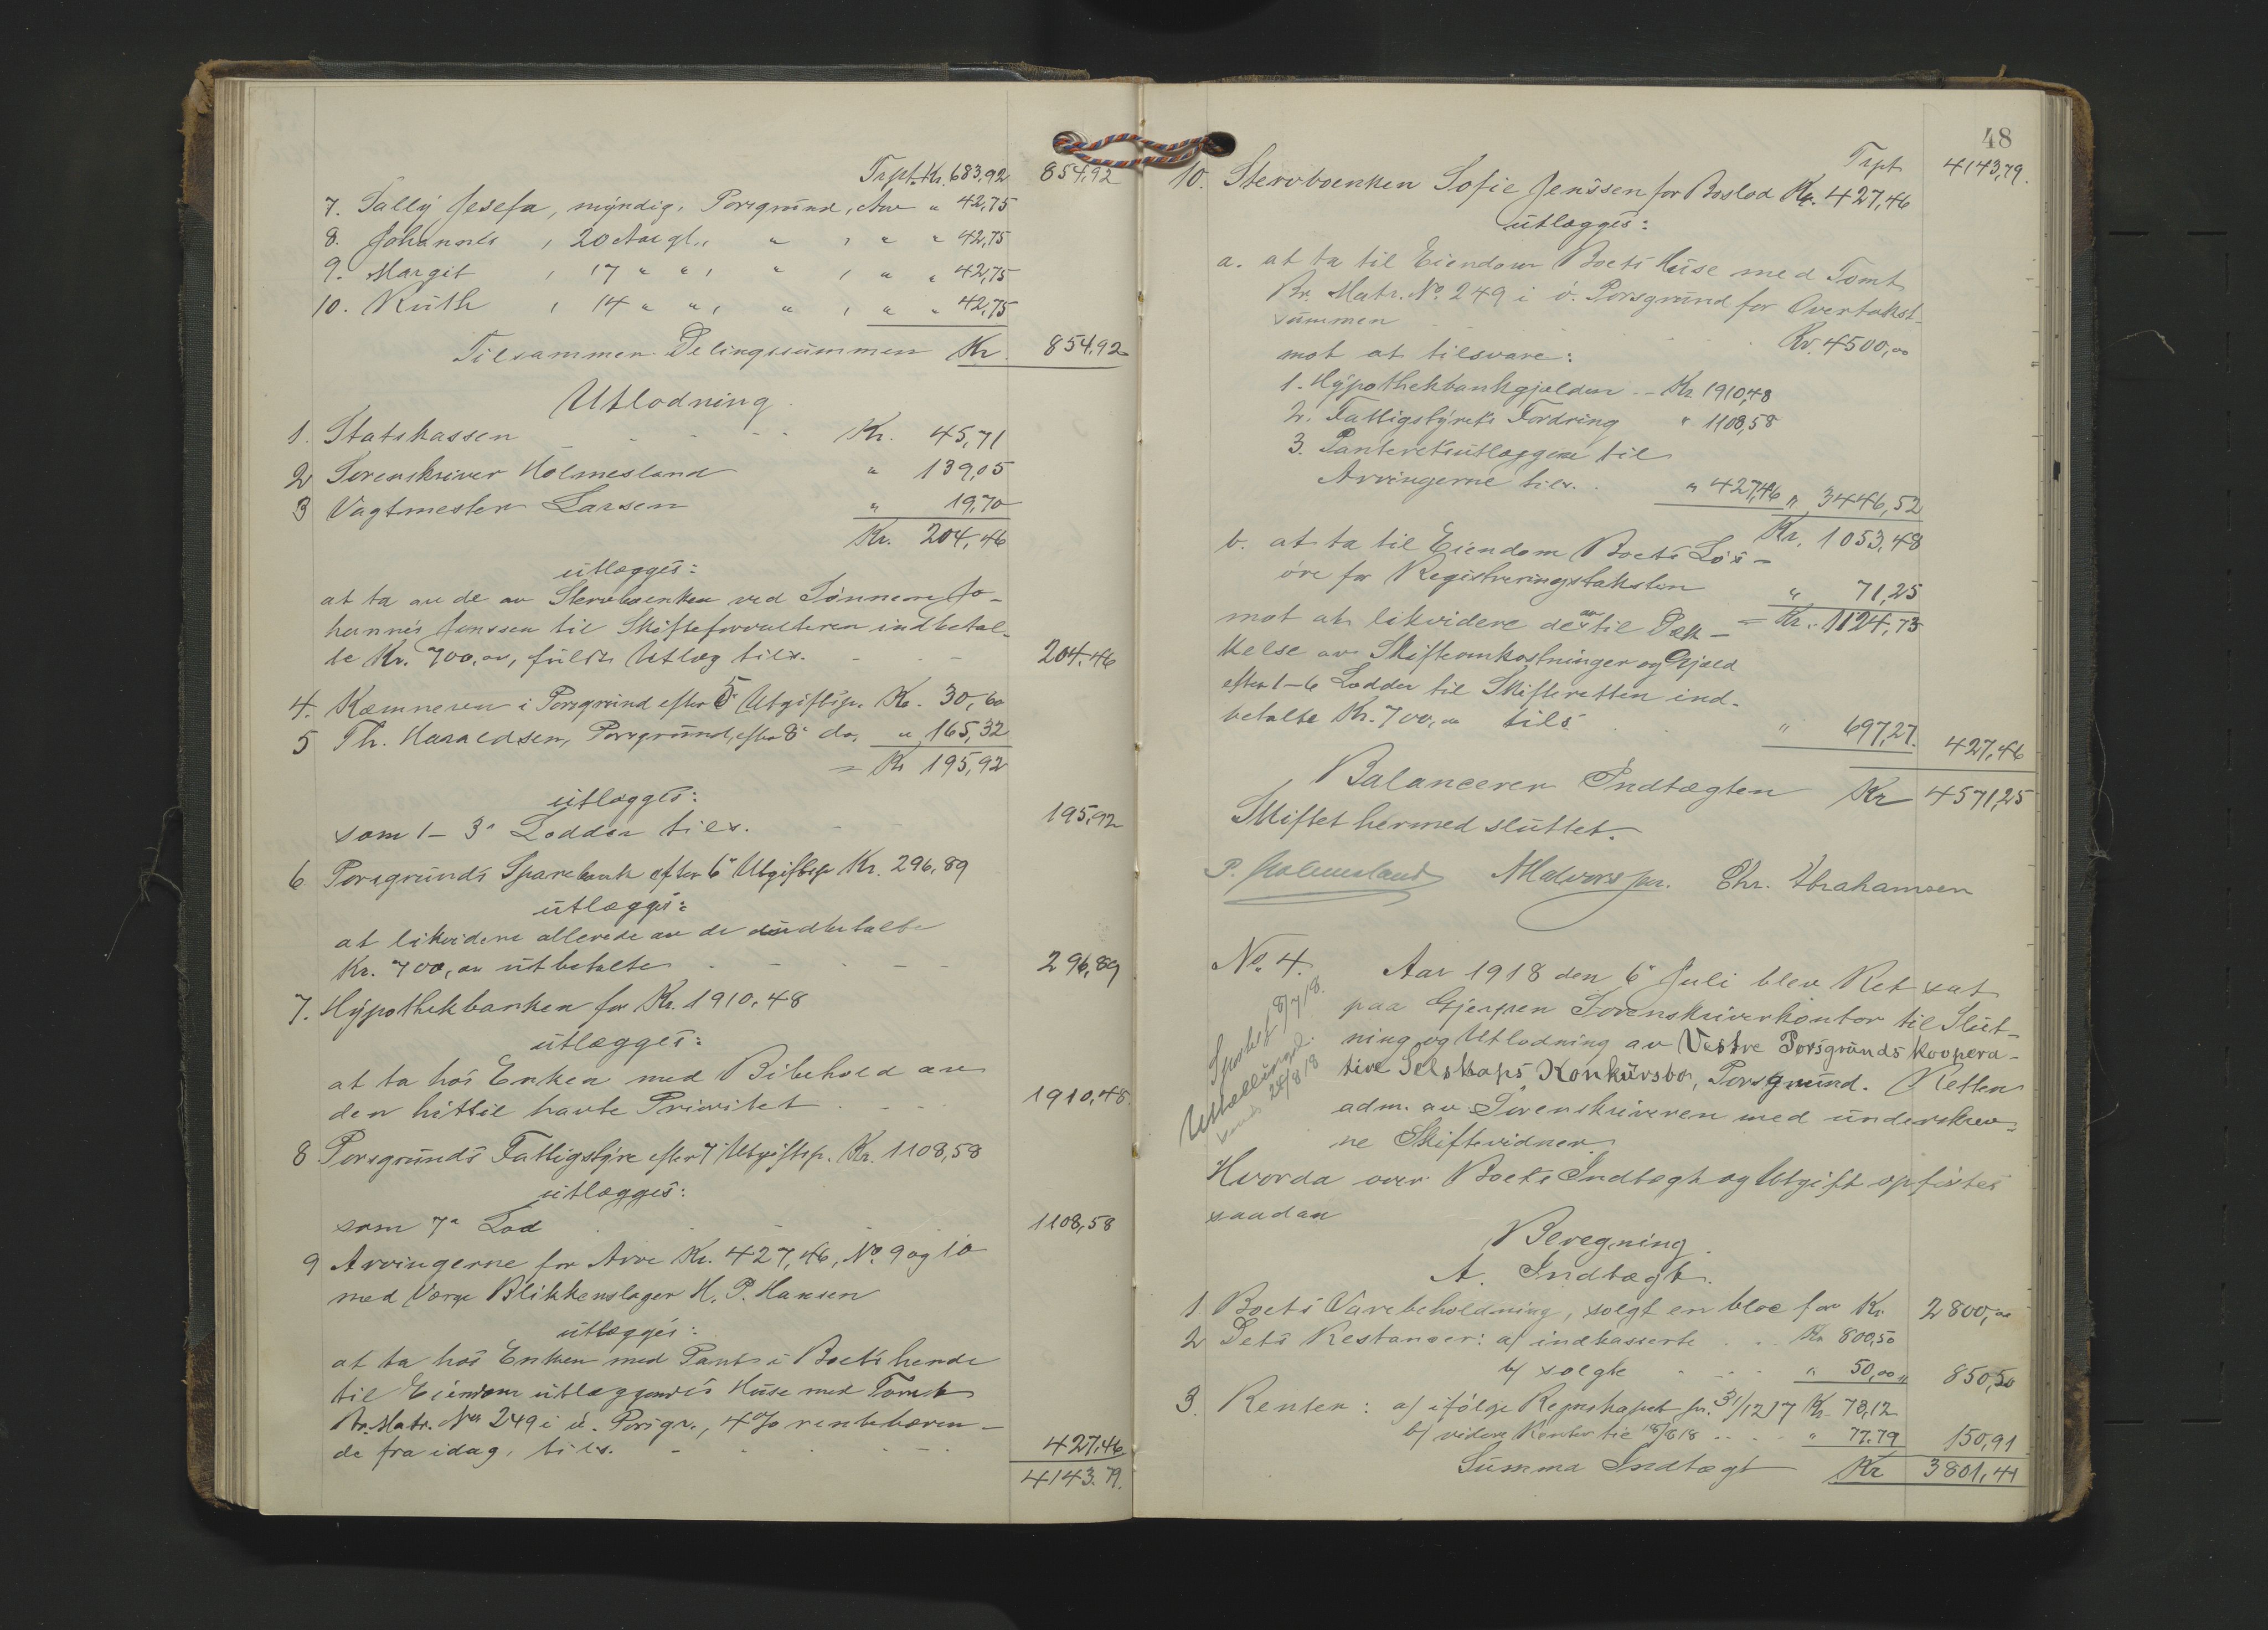 Trpt. Kr. 683,92 854,92
7. Sally Josefa, myndig, Porsgrund, Arv " 42,75
8. Johannes , 20 Aar gl., " , " " 42,75
9. Margit , 17 " " , " , " " 42,75
10. Ruth , 14 " " , " , " " 42,75
Tilsammen Delingssummen Kr. 854,92
Utlodning.
1. Statskassen Kr. 45,71
2 Sorenskriver Holmesland " 139,05
3 Vagtmester Larsen " 19,70
Kr. 204,46
utlægges:
at ta av de av Stervboenken ved Sønnen Jo-
hannes Jenssen til Skifteforvalteren indbetal-
te Kr. 700,00, fuldt Utlæg tils. 204.46
4. Kæmneren i Porsgrund efter 5 Utgiftsp. Kr. 30,60
5 Th. Haraldsen, Porsgrund, efter 8' do. " 165,32
= Kr 195,92
utlægges:
som 1-3' Lodder tils. 195,92
6 Porsgrunds Sparebank efter 6' Utgiftsp Kr. 296,89
utlægges:
at likvidere allerede av de indbetalte
Kr. 700,00 utbetalte 296,89
7. Hypothekbanken for Kr. 1910,48
utlægges:
at ta hos Enken med Bibehold av
den hittil havte Prioritet 1910,48
8 Porsgrunds Fattigstyre efter 7 Utgiftsp. Kr. 1108,58
utlægges:
som 7' Lod 1108,58
9 Arvingerne for Arv Kr. 427,46, No. 9 og 10
med Værge Blikkenslager H. P. Hansen
utlægges:
at ta hos Enken med Pant i Boets hende
til Eiendom utlæggendes Huse med Tomt
Br. Matr. No 249 i ø. Porsgr., 4% rentebæren-
de fra idag, tils. 427.46
4143.79.
48
Trpt 4143,79.
10. Stervboenken Sofie Jenssen for Boslod Kr. 427,46
utlægges:
a. at ta til Eiendom Boets Huse med Tomt
Br. Matr. No. 249 i ø. Porsgrund for Overtakst-
summen Kr. 4500,00
mot at tilsvare:
1. Hypothekbankgjælden -- Kr 1910,48
2. Fattigstyrets Fordring " 1108,58
3. Panteretsutlæggene til
Arvingerne tils. " 427,46 " 3446,52
Kr. 1053,48
b. at ta til Eiendom Boets Løs-
øre for Registreringstaksten " 71,25
= Kr. 1124,73
mot at likvidere de av til Dæk-
kelse av Skifteomkostninger og Gjæld
efter 1-6 Lodder til Skifteretten ind-
betalte Kr. 700,00 tils " 697,27. 427,46
Balancerer Indtægten Kr 4571,25
Skiftet hermed sluttet.
P. Holmesland AHalvorsen. Chr. Abrahamsen
No. 4.
Sportel 8/7 18.
24/8 18
Aar 1918 den 6' Juli blev Ret sat
paa Gjerpen Sorenskriverkontor til Slut-
ning og Utlodning av Vestre Porsgrunds Koopera-
tive Selskaps Konkursbo, Porsgrund. Retten
adm. av Sorenskriveren med underskrev-
ne Skiftevidner.
Hvorda over Boets Indtægt og Utgift opføres
saadan
Beregning.
A. Indtægt.
1. Boets Varebeholdning, solgt en bloc for Kr. 2800,00
2 Dets Restancer: a/ indkasserte Kr 800,50
b/ solgte " 50,00 " 850,50
3. Renter: a/ ifølge Regnskapet pr. 31/12 17 Kr 73,12
b/ videre Renter til 18/6 18 " 77.79 150,91
Summa Indtægt Kr 3801,41